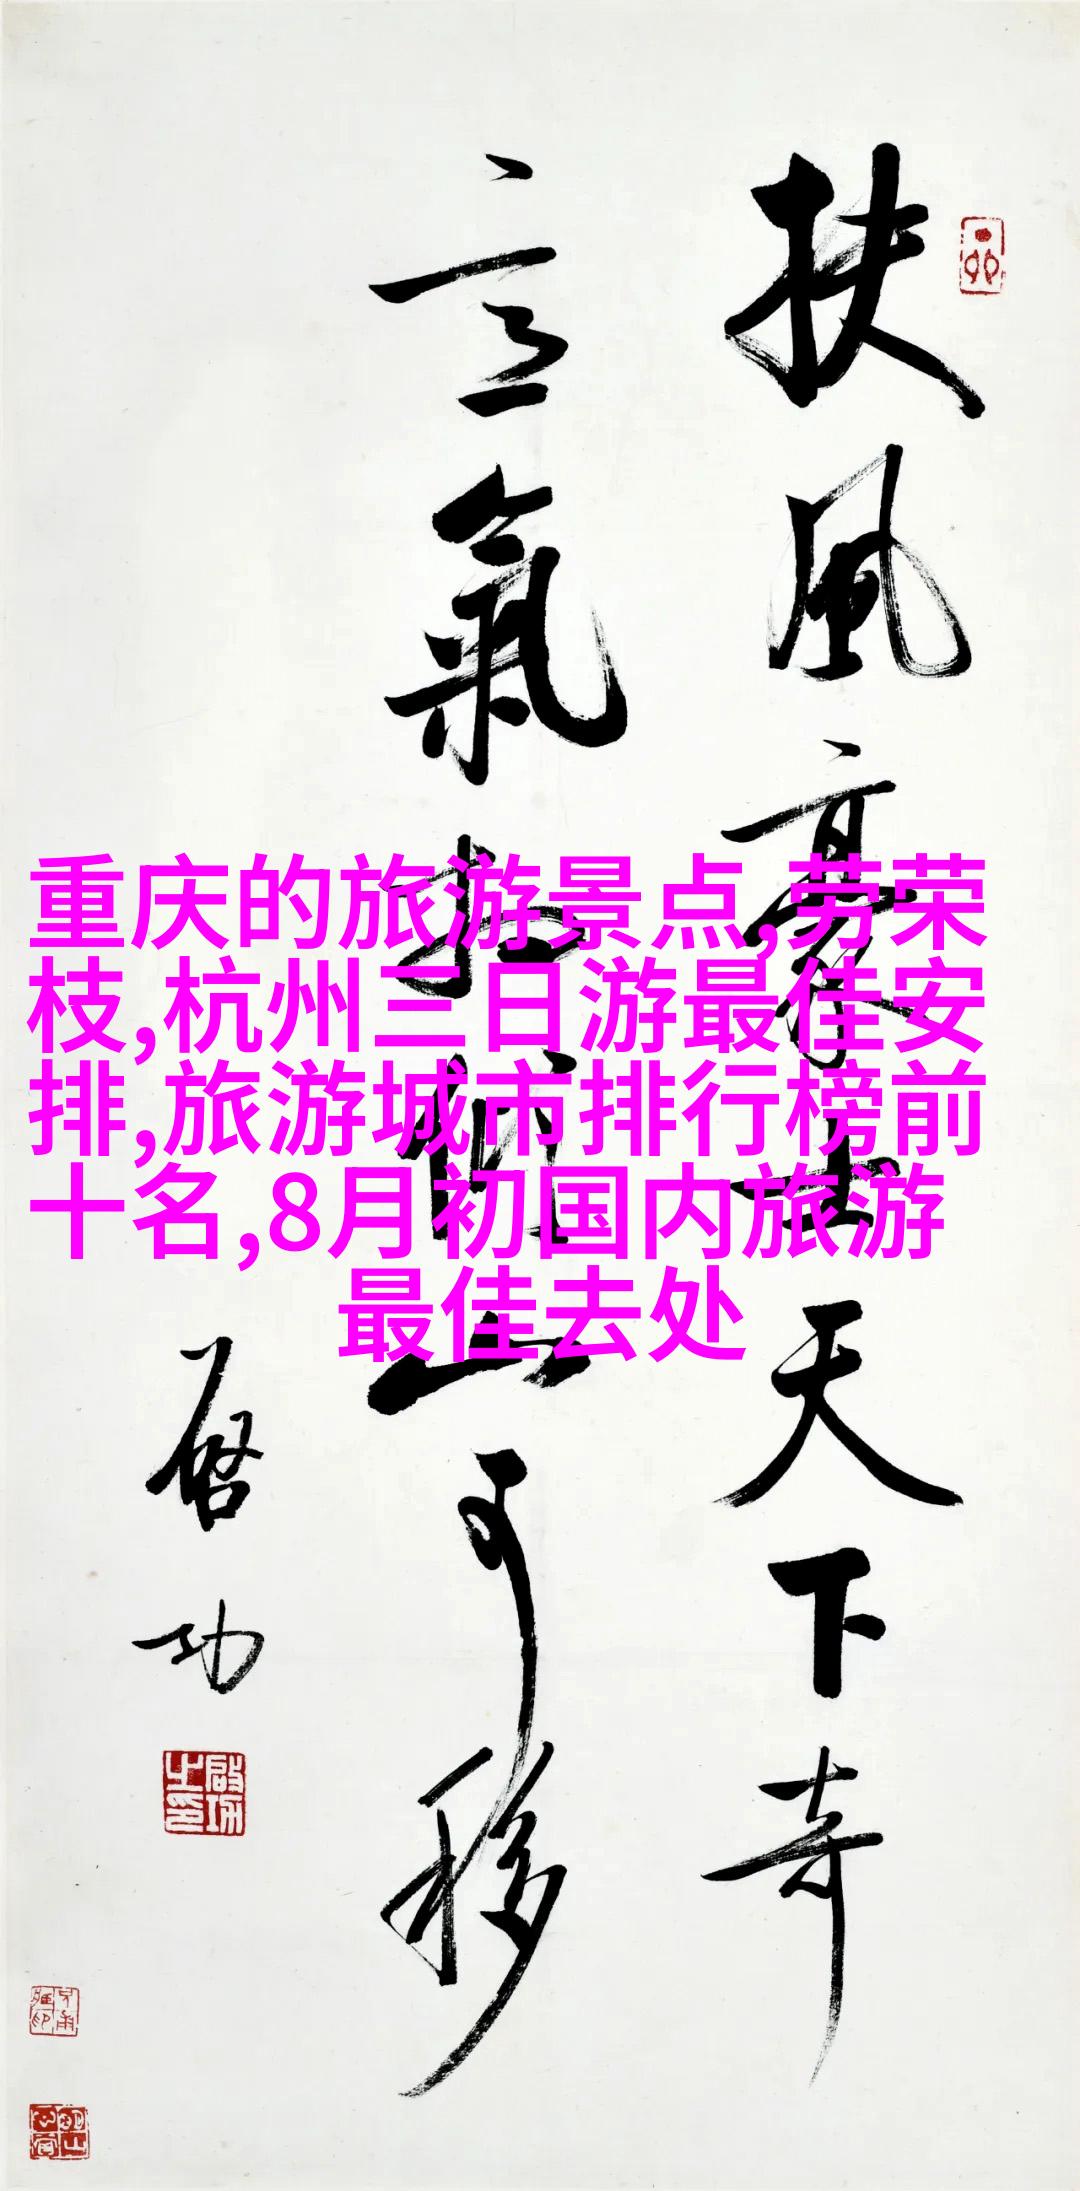 扶風豪士天下奇
意氣相傾山可移
啟功
啟功之印
重庆的旅游景点,劳荣
枝,杭州三日游最佳安
排,旅游城市排行榜前
十名,8月初国内旅游
最佳去处